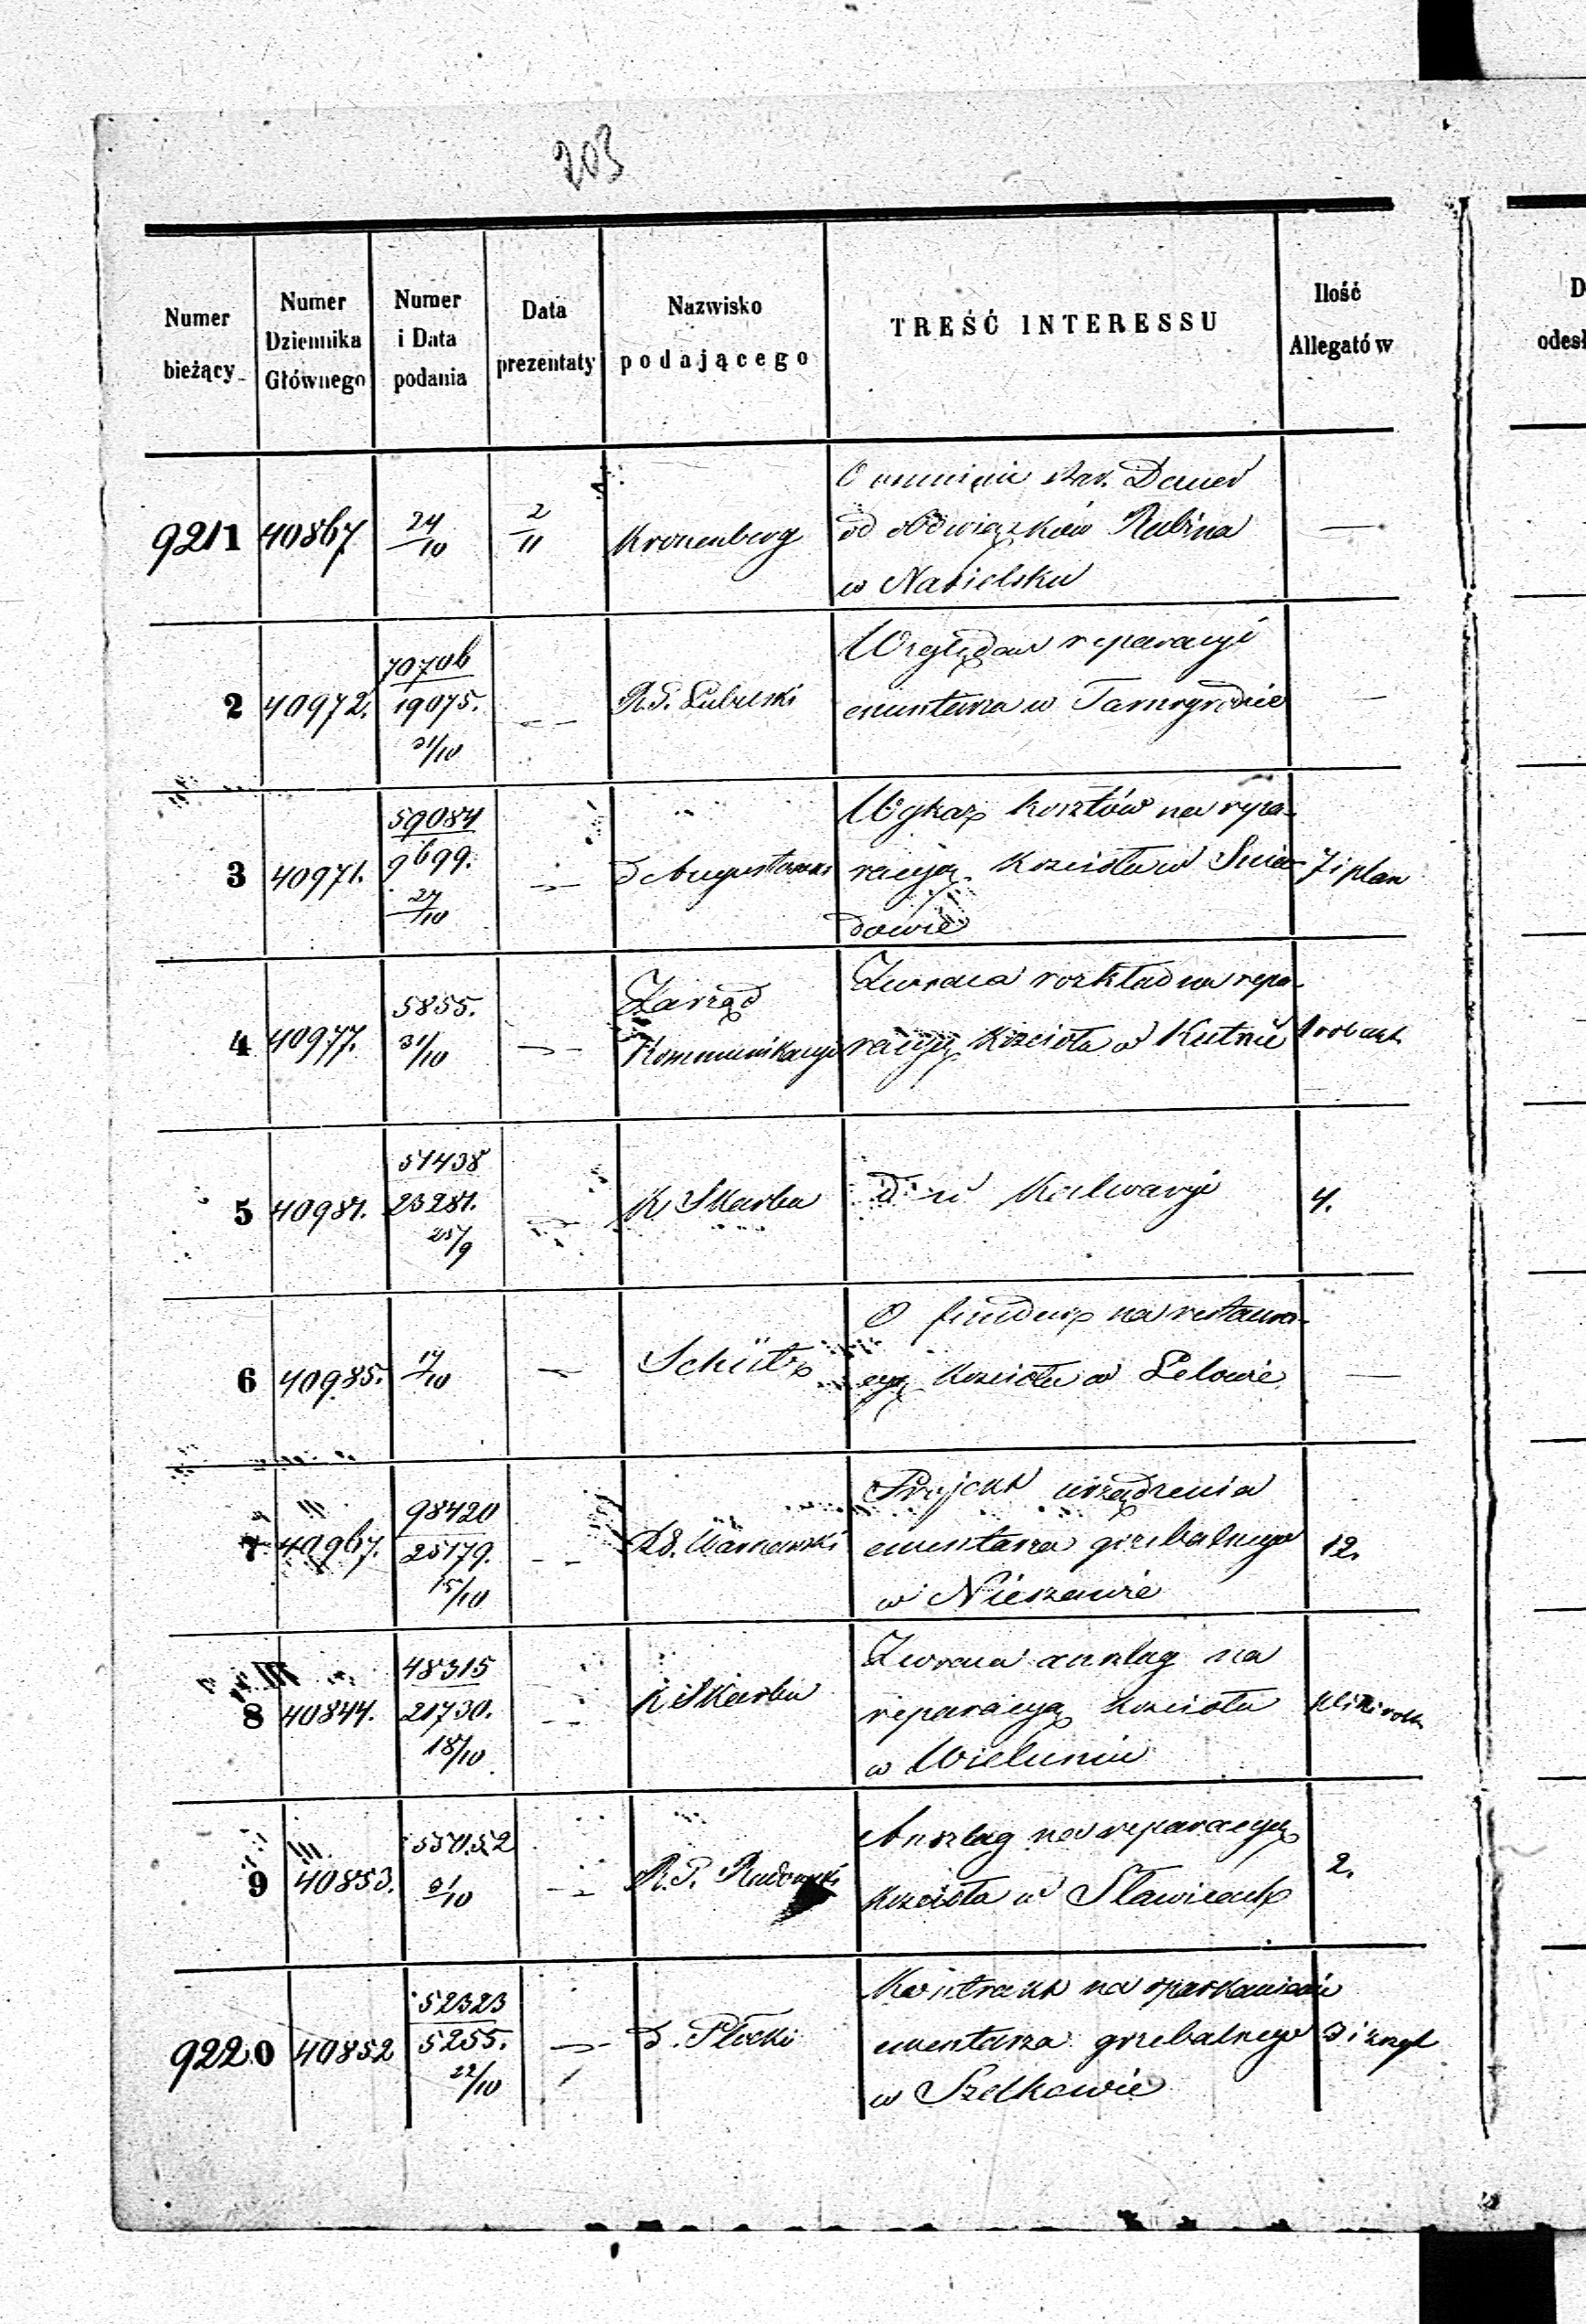 203
Numer bieżący
Numer Dziennika Głównego
Numer i Data podania
Data prezentaty
Nazwisko podającego
TREŚĆ INTERESSU
Ilość Allegatów
D
odesł
9211 40867 24/10 2/11 Kronenberg
od obowiązków Rabina
w Nasielsku
—
2 40972. 70706
19075.
31/10
R. G. Lubelski
Względem reparacyi
cmentarza w Tarnogrodzie
—
3 40971. 59084
9699.
27/10
d Augustowski
Wykaz kosztów na repa-
racyą Kościoła w
7 i plan
4 40977. 5855.
31/10
Zarząd
Kommunikacyi
Zwraca rozkład na repa-
racyą Kościoła w Kutnie
5 40981. 51438
23281.
25/9
K Skarbu
d w Kalwaryi
4.
6 40985. 17/10
Schütz
O fundusz na restaura-
cyą Kościoła w Lelowie
—
7 40967. 98420
25179.
15/10
Rd. Warszawski
Projekt urządzenia
cmentarza grzebalnego
w Nieszawie
12.
8 40844. 48315
21730.
18/10
K Skarbu
Zwraca anszlag na
reparacyą Kościoła
w Wieluniu
9 40853. 55052
31/10
R. G. Radomski
Anszlag na reparacyą
Kościoła w Sławicach
2.
9220 40852 52323
5255.
22/10
d. Płocki
Kontrakt na oparkanienie
cmentarza grzebalnego
w Szelkowie